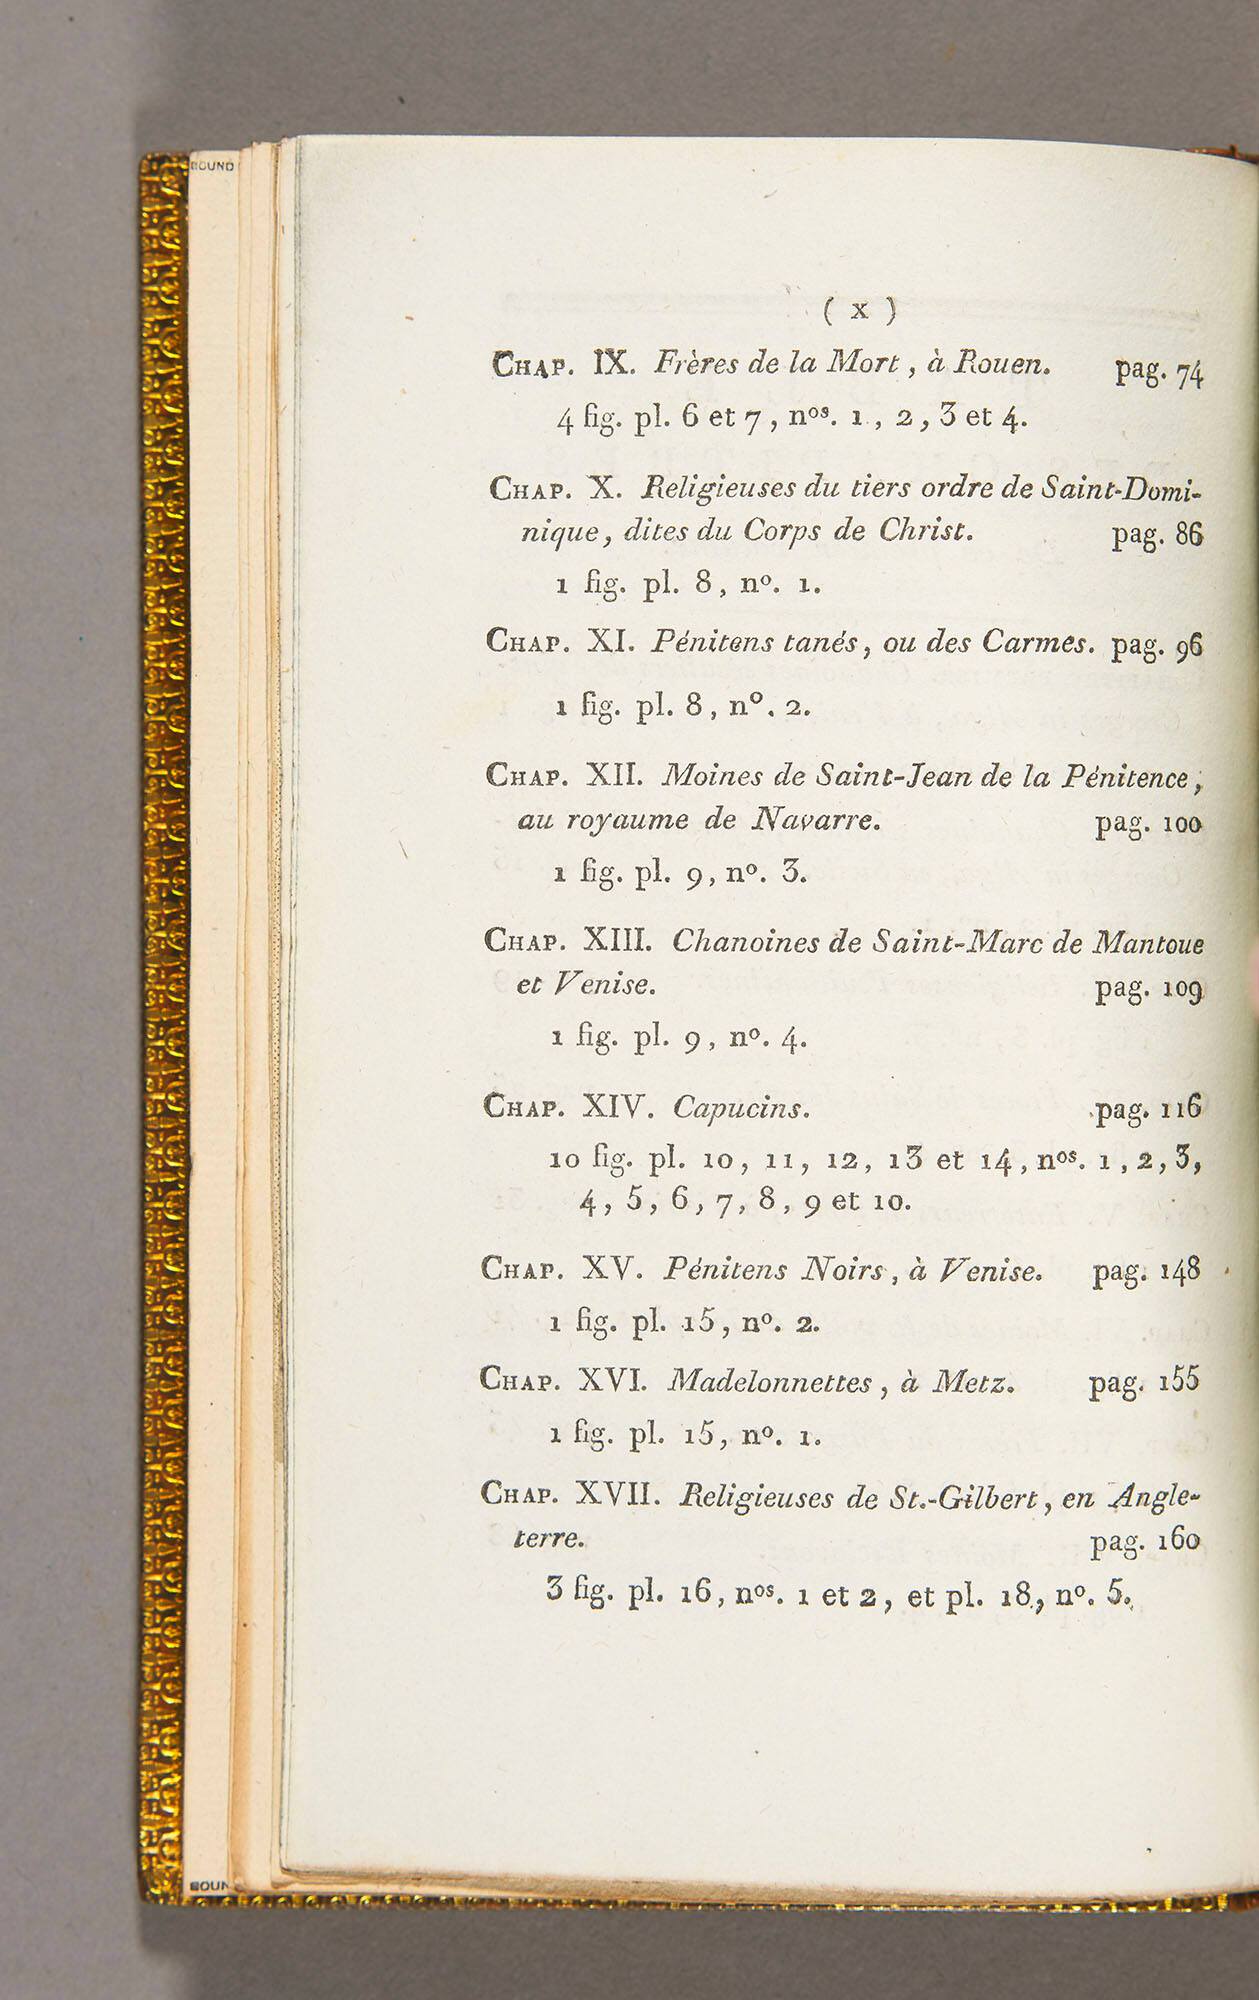 BOUND
( x )
CHAP. IX. Frères de la Mort, à Rouen. pag. 74
4 fig. pl. 6 et 7, nos. 1, 2, 3 et 4.
CHAP. X. Religieuses du tiers ordre de Saint-Domi-
nique, dites du Corps de Christ. pag. 86
1 fig. pl. 8, no. 1.
CHAP. XI. Pénitens tanés, ou des Carmes. pag. 96
1 fig. pl. 8, no. 2.
CHAP. XII. Moines de Saint-Jean de la Pénitence,
au royaume de Navarre. pag. 100
1 fig. pl. 9, no. 3.
CHAP. XIII. Chanoines de Saint-Marc de Mantoue
et Venise. pag. 109
1 fig. pl. 9, no. 4.
CHAP. XIV. Capucins. pag. 116
10 fig. pl. 10, 11, 12, 13 et 14, nos. 1, 2, 3,
4, 5, 6, 7, 8, 9 et 10.
CHAP. XV. Pénitens Noirs, à Venise. pag. 148
1 fig. pl. 15, no. 2.
CHAP. XVI. Madelonnettes, à Metz. pag. 155
1 fig. pl. 15, no. 1.
CHAP. XVII. Religieuses de St.-Gilbert, en Angle-
terre. pag. 160
3 fig. pl. 16, nos. 1 et 2, et pl. 18, no. 5.
BOUN